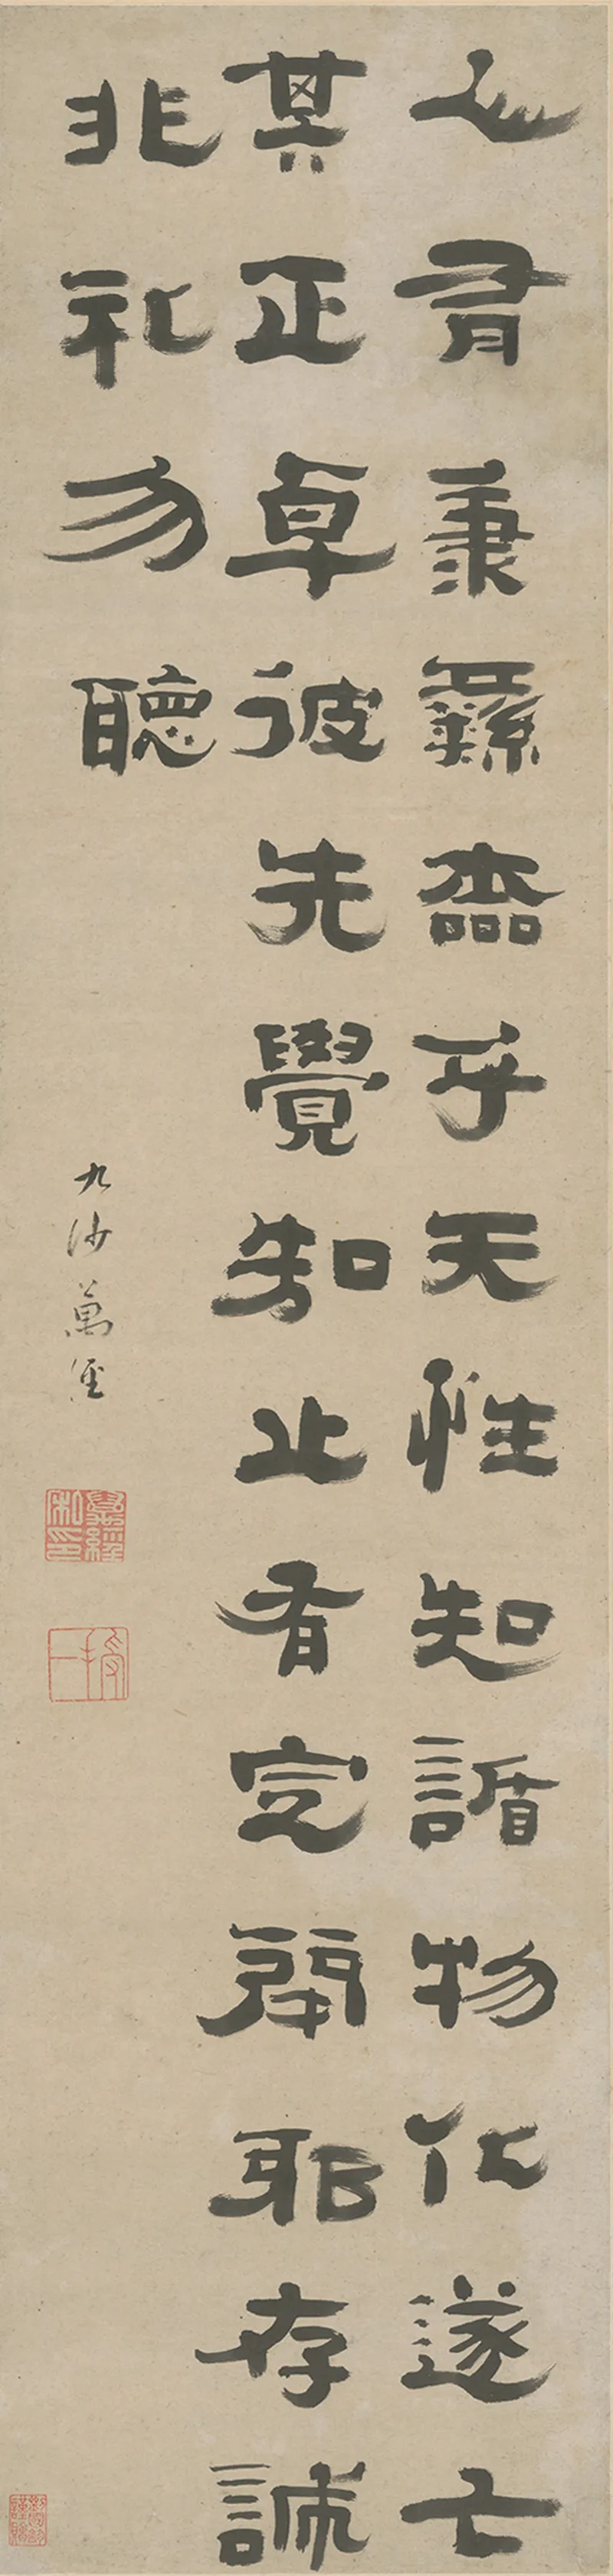 人有秉彝本乎天性知誘物化遂亡
其正卓彼先覺知止有定閑耶存誠
非礼勿聽
九沙萬經
萬經私印
授一